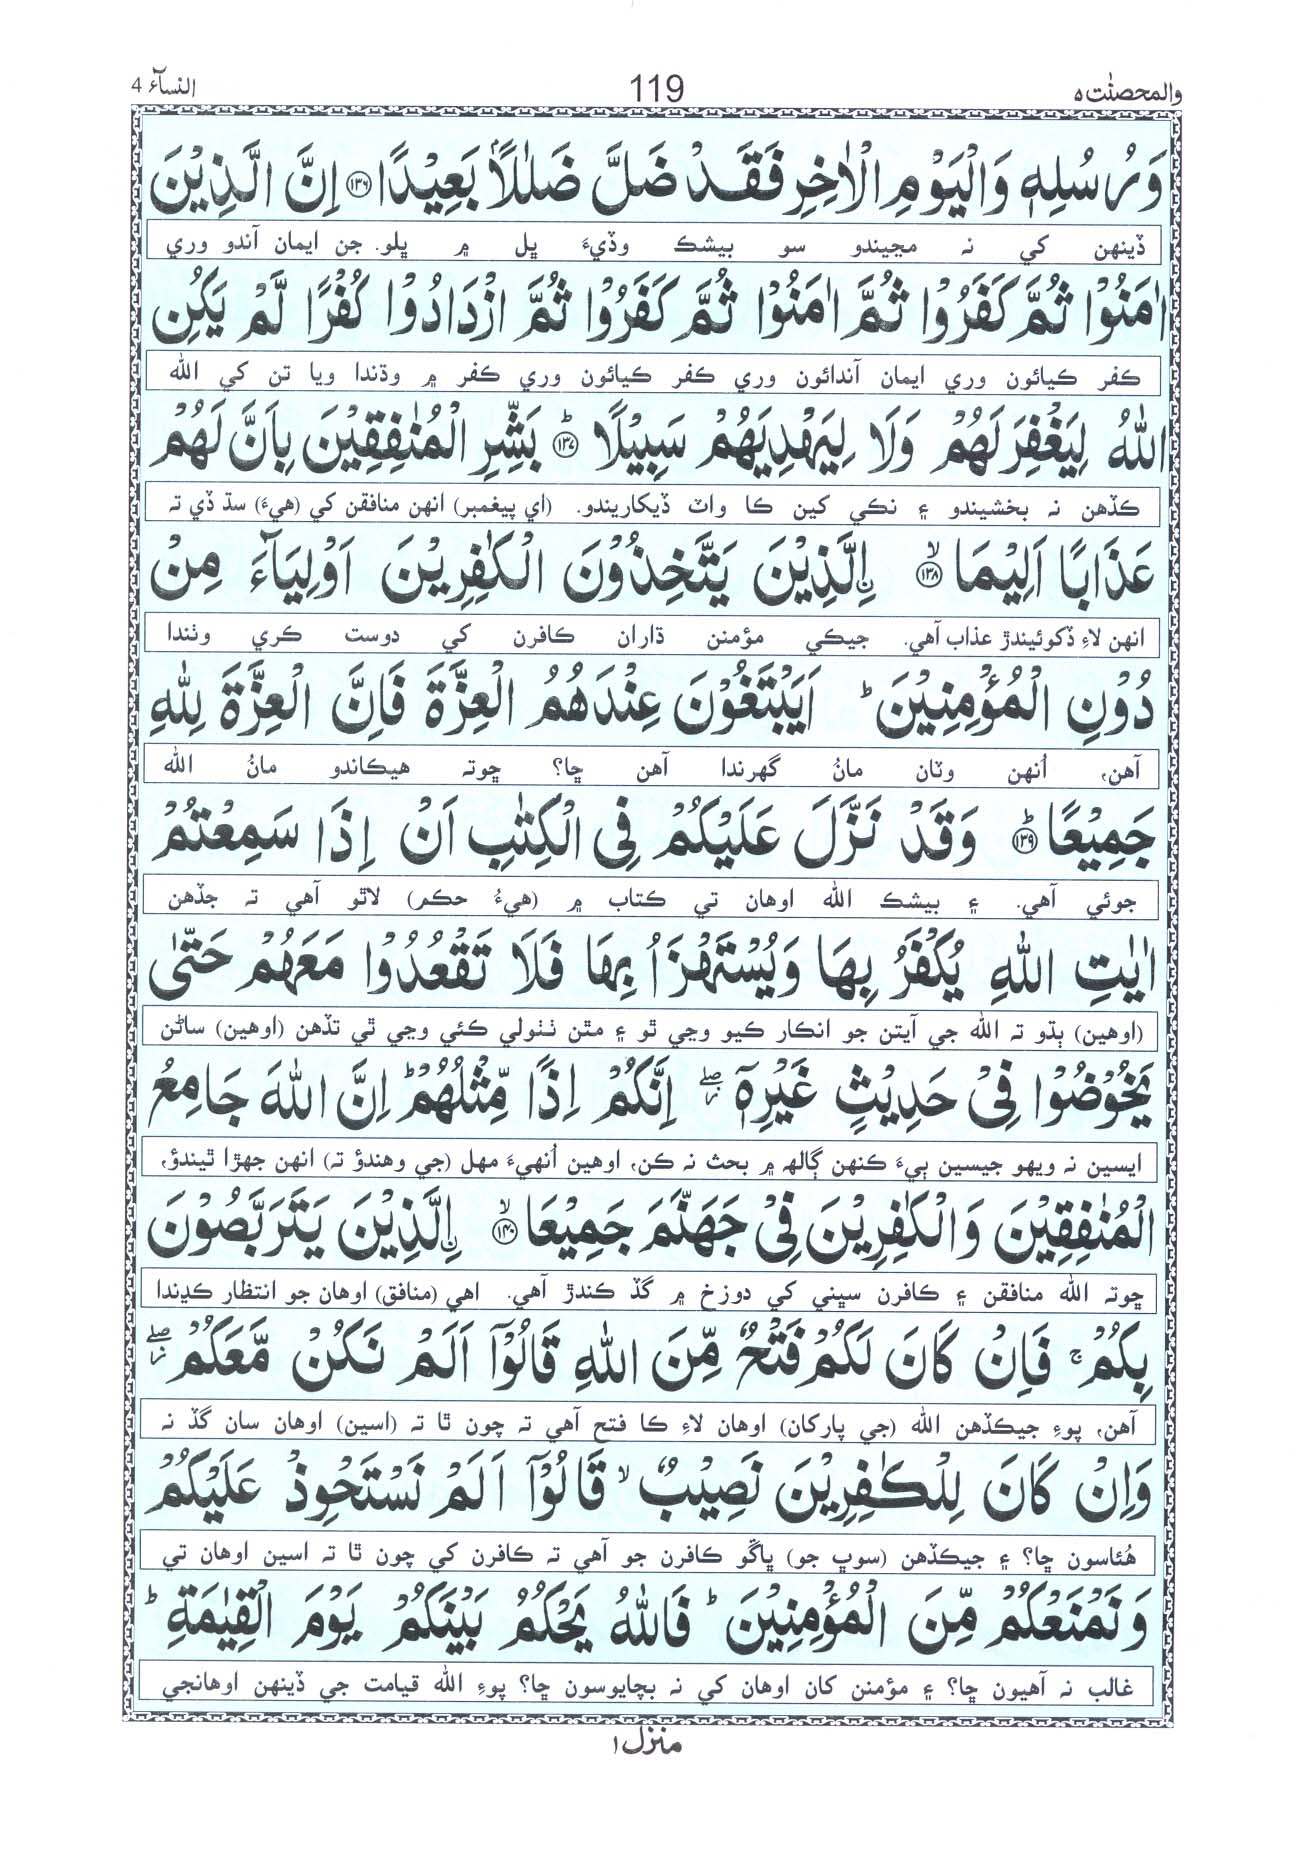 والمحصنٰت ٥ 119 النسآء 4
وَرُسُلِهٖ وَالْيَوْمِ الْاٰخِرِ فَقَدْ ضَلَّ ضَلٰلًاۢ بَعِيْدًا ۝۱۳۶ اِنَّ الَّذِيْنَ
ڏينهن کي نہ مڃيندو سو بيشڪ وڏيءَ ڀل ۾ ڀلو. جن ايمان آندو وري
اٰمَنُوْا ثُمَّ كَفَرُوْا ثُمَّ اٰمَنُوْا ثُمَّ كَفَرُوْا ثُمَّ ازْدَادُوْا كُفْرًا لَّمْ يَكُنِ
ڪفر ڪيائون وري ايمان آندائون وري ڪفر ڪيائون وري ڪفر ۾ وڌندا ويا تن کي الله
اللّٰهُ لِيَغْفِرَ لَهُمْ وَلَا لِيَهْدِيَهُمْ سَبِيْلًا ؕ۝۱۳۷ بَشِّرِ الْمُنٰفِقِيْنَ بِاَنَّ لَهُمْ
ڪڏهن نہ بخشيندو ۽ نڪي کين ڪا واٽ ڏيکاريندو. (اي پيغمبر) انهن منافقن کي (هيءَ) سڌ ڏي تہ
عَذَابًا اَلِيْمَا ۙ۝۱۳۸ ۨالَّذِيْنَ يَتَّخِذُوْنَ الْكٰفِرِيْنَ اَوْلِيَآءَ مِنْ
انهن لاءِ ڏکوئيندڙ عذاب آهي. جيڪي مؤمنن ڌاران ڪافرن کي دوست ڪري وٺندا
دُوْنِ الْمُؤْمِنِيْنَ ؕ اَيَبْتَغُوْنَ عِنْدَهُمُ الْعِزَّةَ فَاِنَّ الْعِزَّةَ لِلّٰهِ
آهن، اُنهن وٽان مانُ گهرندا آهن ڇا؟ ڇوتہ هيڪاندو مانُ الله
جَمِيْعًا ؕ۝۱۳۹ وَقَدْ نَزَّلَ عَلَيْكُمْ فِى الْكِتٰبِ اَنْ اِذَا سَمِعْتُمْ
جوئي آهي. ۽ بيشڪ الله اوهان تي ڪتاب ۾ (هيءُ حڪم) لاٿو آهي تہ جڏهن
اٰيٰتِ اللّٰهِ يُكْفَرُ بِهَا وَيُسْتَهْزَاُ بِهَا فَلَا تَقْعُدُوْا مَعَهُمْ حَتّٰى
(اوهين) ٻڌو تہ الله جي آيتن جو انڪار ڪيو وڃي ٿو ۽ مٿن ٺٺولي ڪئي وڃي ٿي تڏهن (اوهين) ساڻن
يَخُوْضُوْا فِىْ حَدِيْثٍ غَيْرِهٖۤ ۖ اِنَّكُمْ اِذًا مِّثْلُهُمْ ؕ اِنَّ اللّٰهَ جَامِعُ
ايسين نہ ويهو جيسين ٻيءَ ڪنهن ڳالهہ ۾ بحث نہ ڪن، اوهين اُنهيءَ مهل (جي وهندؤ تہ) انهن جهڙا ٿيندؤ،
الْمُنٰفِقِيْنَ وَالْكٰفِرِيْنَ فِىْ جَهَنَّمَ جَمِيْعَا ۙ۝۱۴۰ ۨالَّذِيْنَ يَتَرَبَّصُوْنَ
ڇوتہ الله منافقن ۽ ڪافرن سڀني کي دوزخ ۾ گڏ ڪندڙ آهي. اهي (منافق) اوهان جو انتظار ڪڍندا
بِكُمْ ۚ فَاِنْ كَانَ لَكُمْ فَتْحٌ مِّنَ اللّٰهِ قَالُوْۤا اَلَمْ نَكُنْ مَّعَكُمْ ۖ
آهن، پوءِ جيڪڏهن الله (جي پارکان) اوهان لاءِ ڪا فتح آهي تہ چون ٿا تہ (اسين) اوهان سان گڏ نہ
وَاِنْ كَانَ لِلْكٰفِرِيْنَ نَصِيْبٌ ۙ قَالُوْۤا اَلَمْ نَسْتَحْوِذْ عَلَيْكُمْ
هُئاسون ڇا؟ ۽ جيڪڏهن (سوڀ جو) ڀاڱو ڪافرن جو آهي تہ ڪافرن کي چون ٿا تہ اسين اوهان تي
وَنَمْنَعْكُمْ مِّنَ الْمُؤْمِنِيْنَ ؕ فَاللّٰهُ يَحْكُمُ بَيْنَكُمْ يَوْمَ الْقِيٰمَةِ ؕ
غالب نہ آهيون ڇا؟ ۽ مؤمنن کان اوهان کي نہ بچايوسون ڇا؟ پوءِ الله قيامت جي ڏينهن اوهانجي
منزل ۱